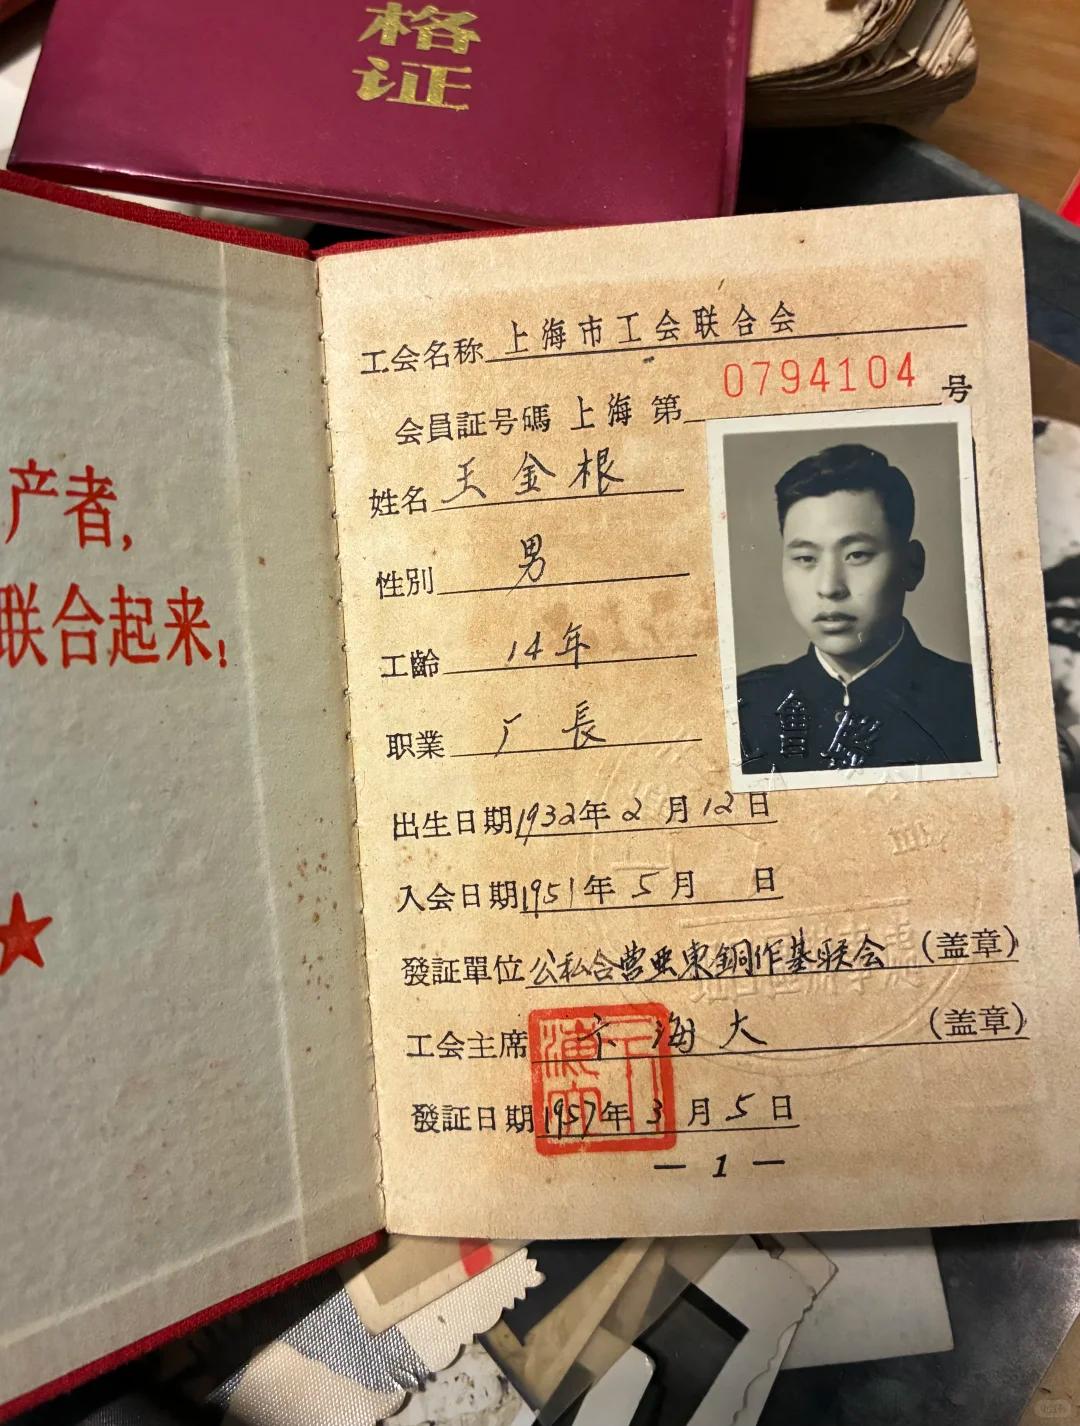 格
证
产者,
联合起来!
工会名称 上海市工会联合会
会員証号碼 上海 第 0794104 号
姓名 王金根
性别 男
工齡 14年
职業 厂長
出生日期 1932年 2月 12日
入会日期 1951年 5月 日
發証單位 公私合营亚東銅作基联会 (盖章)
工会主席 卞海大 (盖章)
發証日期 1957年 3月 5日
— 1 —